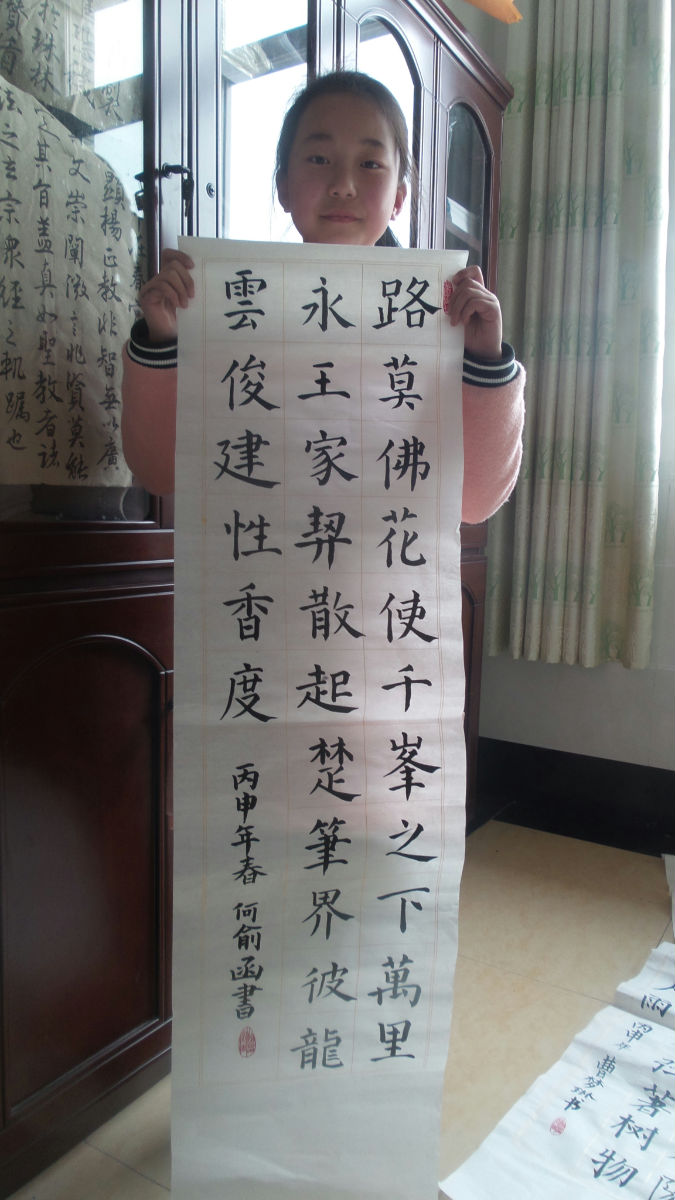 路莫佛花使千峯之下萬里
永王家契散起楚筆界彼龍
雲俊建性香度
丙申年春 何俞函書
顯揚正教非智無以廣
文崇闡微言非賢莫能
定其旨蓋真如聖教者諸
法之玄宗眾經之軌躅也
珠林
著树物
雨